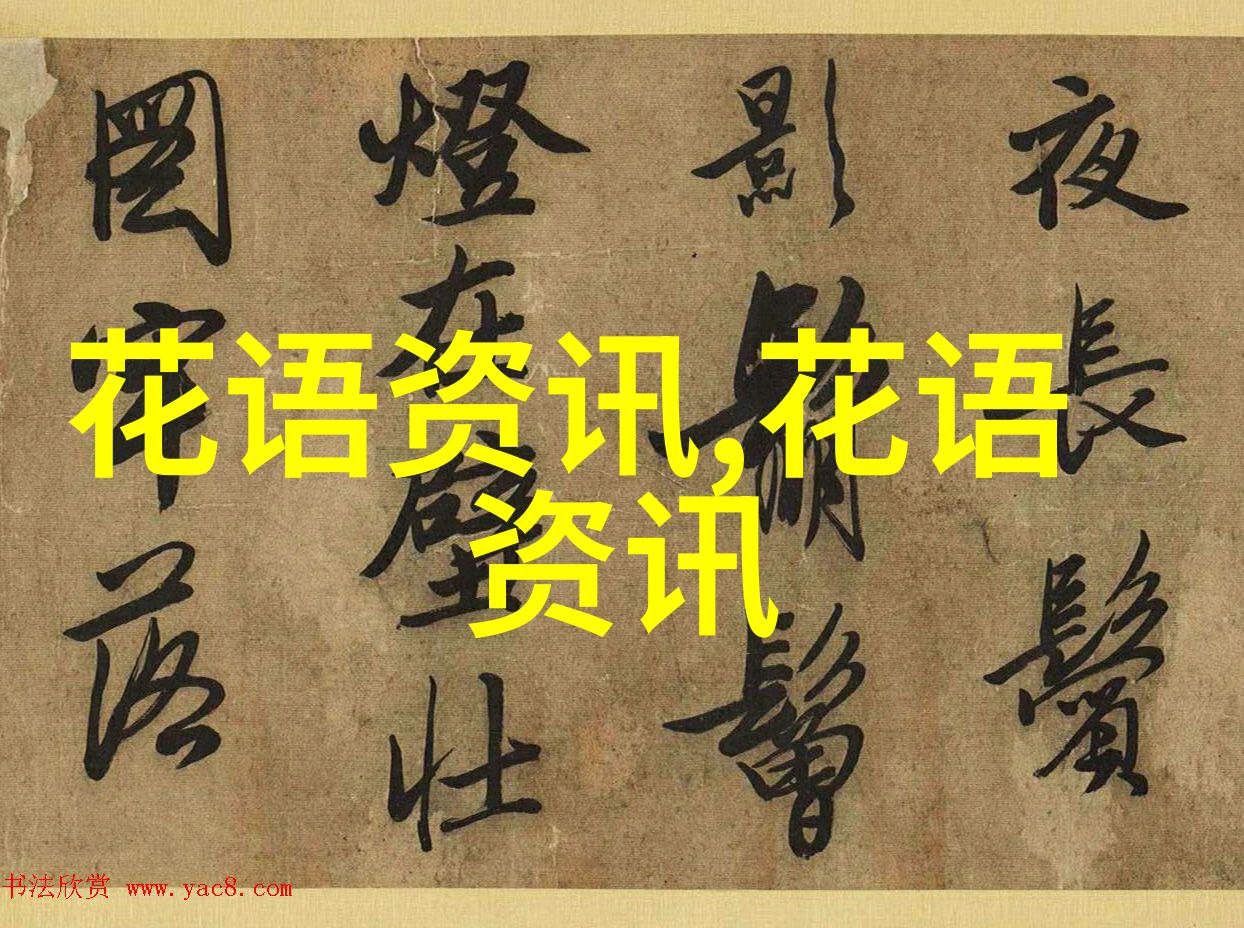 夜長鬢
影鬅鬙
燈在壁壯
圖牢落
花语资讯,花语
资讯
书法欣赏 www.yac8.com